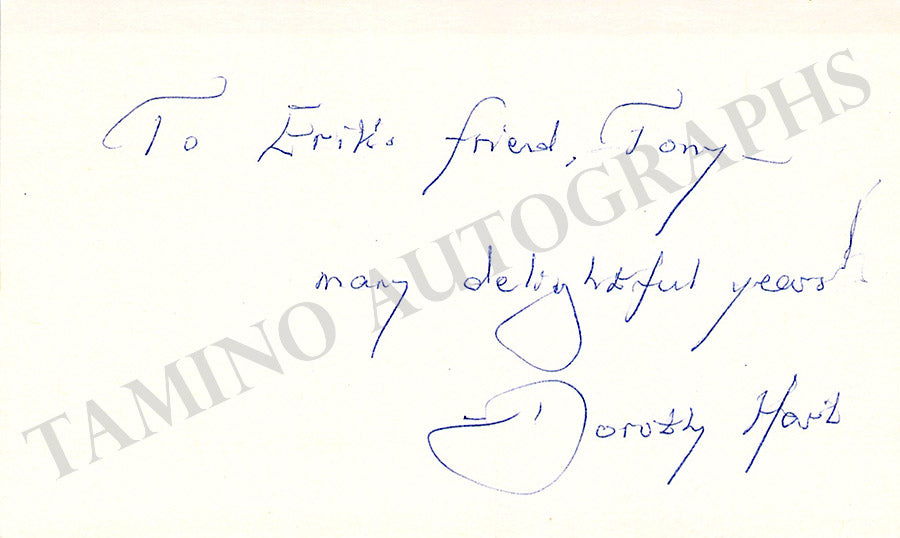 To Eriks friend, Tony –
many delightful years!
Dorothy Hart
TAMINO AUTOGRAPHS